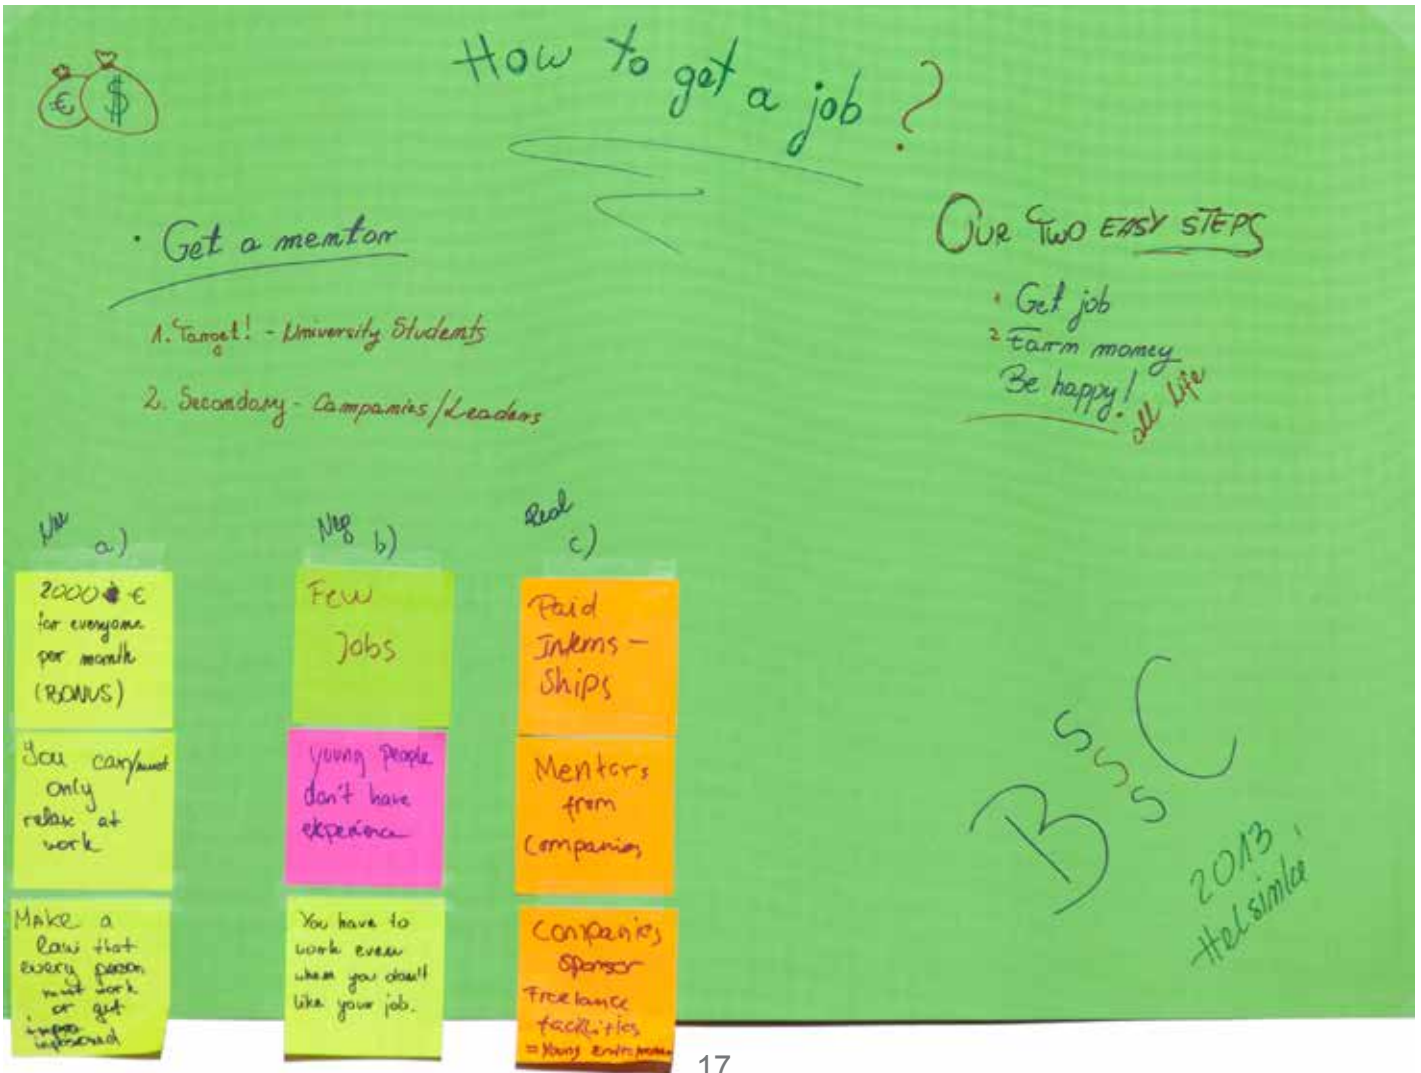 € $
How to get a job ?
• Get a mentor
1. Target! - University Students
2. Secondary - Companies/Leaders
OUR TWO EASY STEPS
1 Get job
2 Earn money
Be happy!
all life
a)
2000 €
for everyone
per month
(BONUS)
You can/must
only
relax at
work
MAKE a
law that
every person
must work
or get
Neg b)
Few
Jobs
young people
don't have
experience
You have to
work even
when you don't
like your job.
Real
c)
Paid
Interns-
ships
Mentors
from
Companies
Companies
sponsor
Freelance
facilities
= Young
BSSSC
2013
Helsinki
17